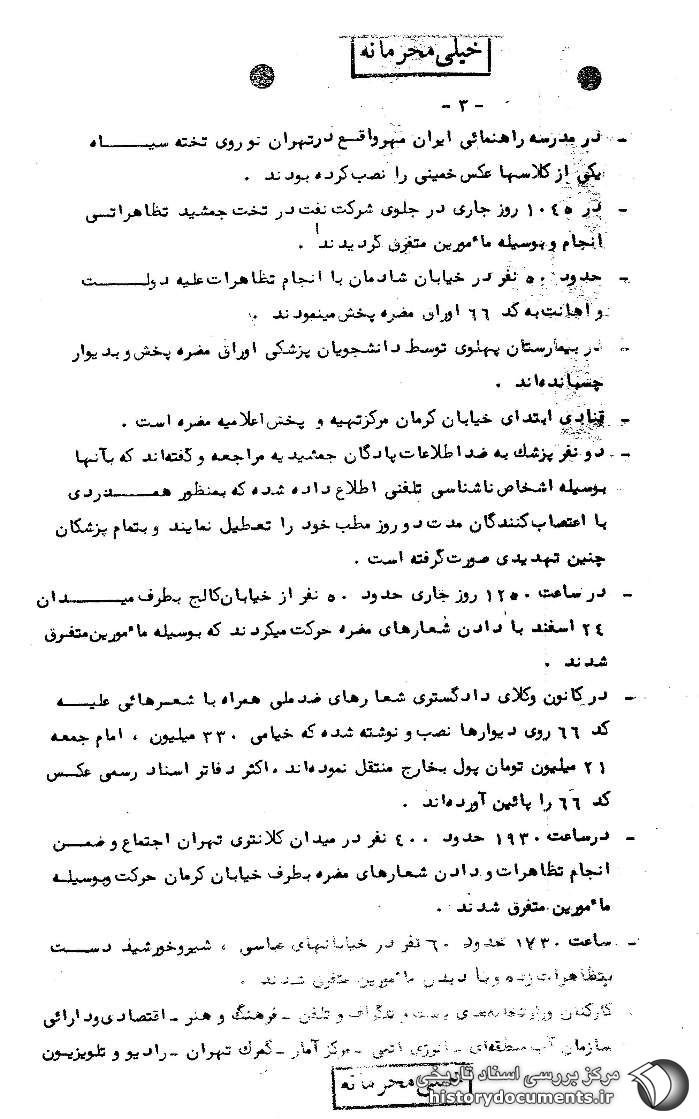 خیلی محرمانه
- ۳ -
- در مدرسه راهنمائی ایران مهر واقع در تهران نو روی تخته سیـــــاه
یکی از کلاسها عکس خمینی را نصب کرده بودند .
- در ۱۰۴۵ روز جاری در جلوی شرکت نفت در تخت جمشید تظاهراتـی
انجام و بوسیله مأمورین متفرق گردیدند .
- حدود ۵۰ نفر در خیابان شادمان با انجام تظاهرات علیه دولـــــت
و اهانت به کد ۶۶ اوراق مضره پخش مینمودند .
- در بیمارستان پهلوی توسط دانشجویان پزشکی اوراق مضره پخش و بدیوار
چسبانده‌اند .
- قنادی ابتدای خیابان کرمان مرکز تهیه و پخش اعلامیه مضره است .
- دو نفر پزشك به ضد اطلاعات پادگان جمشیدیه مراجعه و گفته‌اند که بآنها
بوسیله اشخاص ناشناسی تلفنی اطلاع داده شده که بمنظور همـــدردی
با اعتصاب کنندگان مدت دو روز مطب خود را تعطیل نمایند و بتمام پزشکان
چنین تهدیدی صورت گرفته است .
- در ساعت ۱۲۵۰ روز جاری حدود ۵۰ نفر از خیابان کالج بطرف میـــــدان
۲۴ اسفند با دادن شعارهای مضره حرکت میکردند که بوسیله مأمورین متفـرق
شدند .
- در کانون وکلای دادگستری شعارهای ضد ملی همراه با شعـرهائی علیـــه
کد ۶۶ روی دیوارها نصب و نوشته شده که خیامی ۳۳۰ میلیون ، امام جمعه
۲۱ میلیون تومان پول بخارج منتقل نموده‌اند . اکثر دفاتر اسناد رسمی عکـس
کد ۶۶ را پائین آورده‌اند .
- در ساعت ۱۹۳۰ حدود ۴۰۰ نفر در میدان کلانتری تهران اجتماع و ضمـــن
انجام تظاهرات و دادن شعارهای مضره بطرف خیابان کرمان حرکت و بوسیلـه
مأمورین متفرق شدند .
- ساعت ۱۷۳۰ حدود ۶۰ نفر در خیابانهای عباسی ، شیر و خورشید دســت
بتظاهرات زده و با دیدن مأمورین متفرق شدند .
- کارکنان وزارتخانه‌های پست و تلگراف و تلفن - فرهنگ و هنر - اقتصادی و دارائی
سازمان آب منطقه‌ای - انرژی اتمی - مرکز آمار - گمرك تهران - رادیو و تلویزیون
خیلی محرمانه
مرکز بررسی اسناد تاریخی
historydocuments.ir